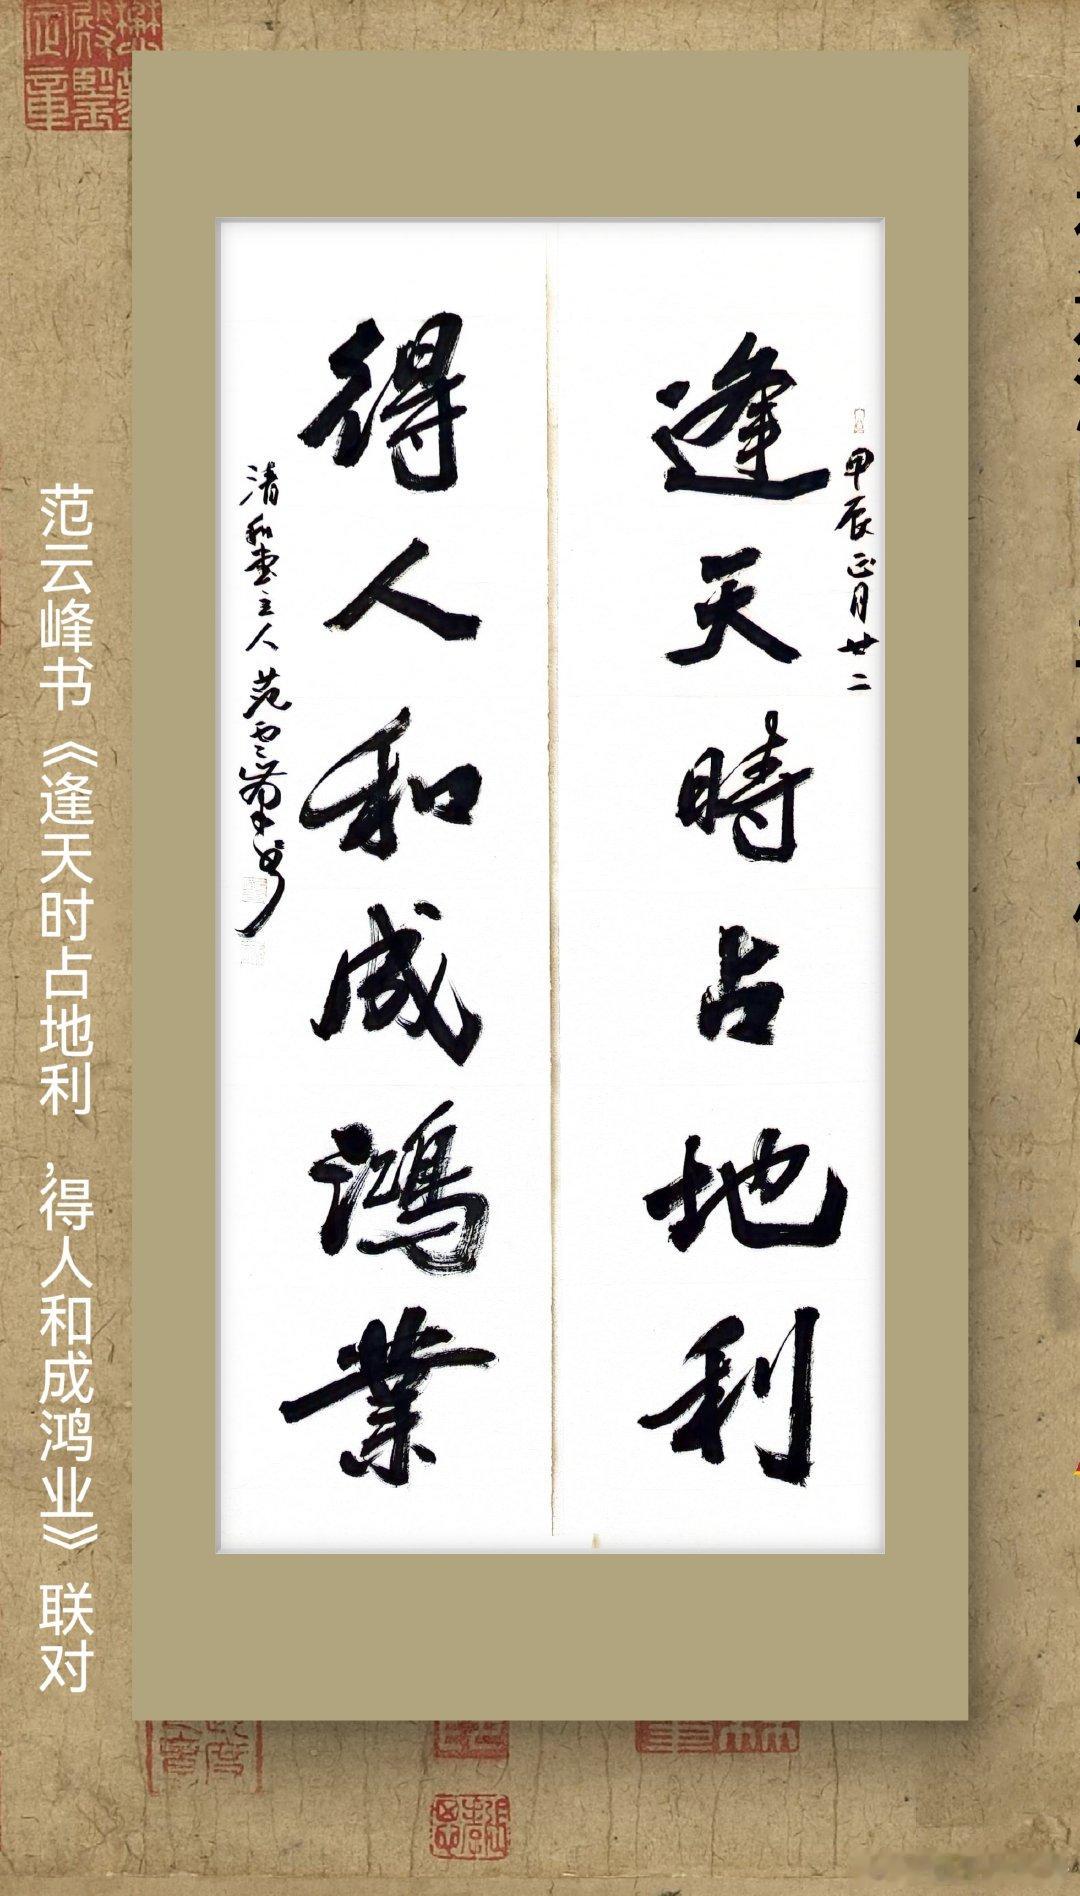 甲辰正月廿二
逢天時占地利
得人和成鴻業
清和堂主人范云峯书
范云峰书《逢天时占地利,得人和成鸿业》联对